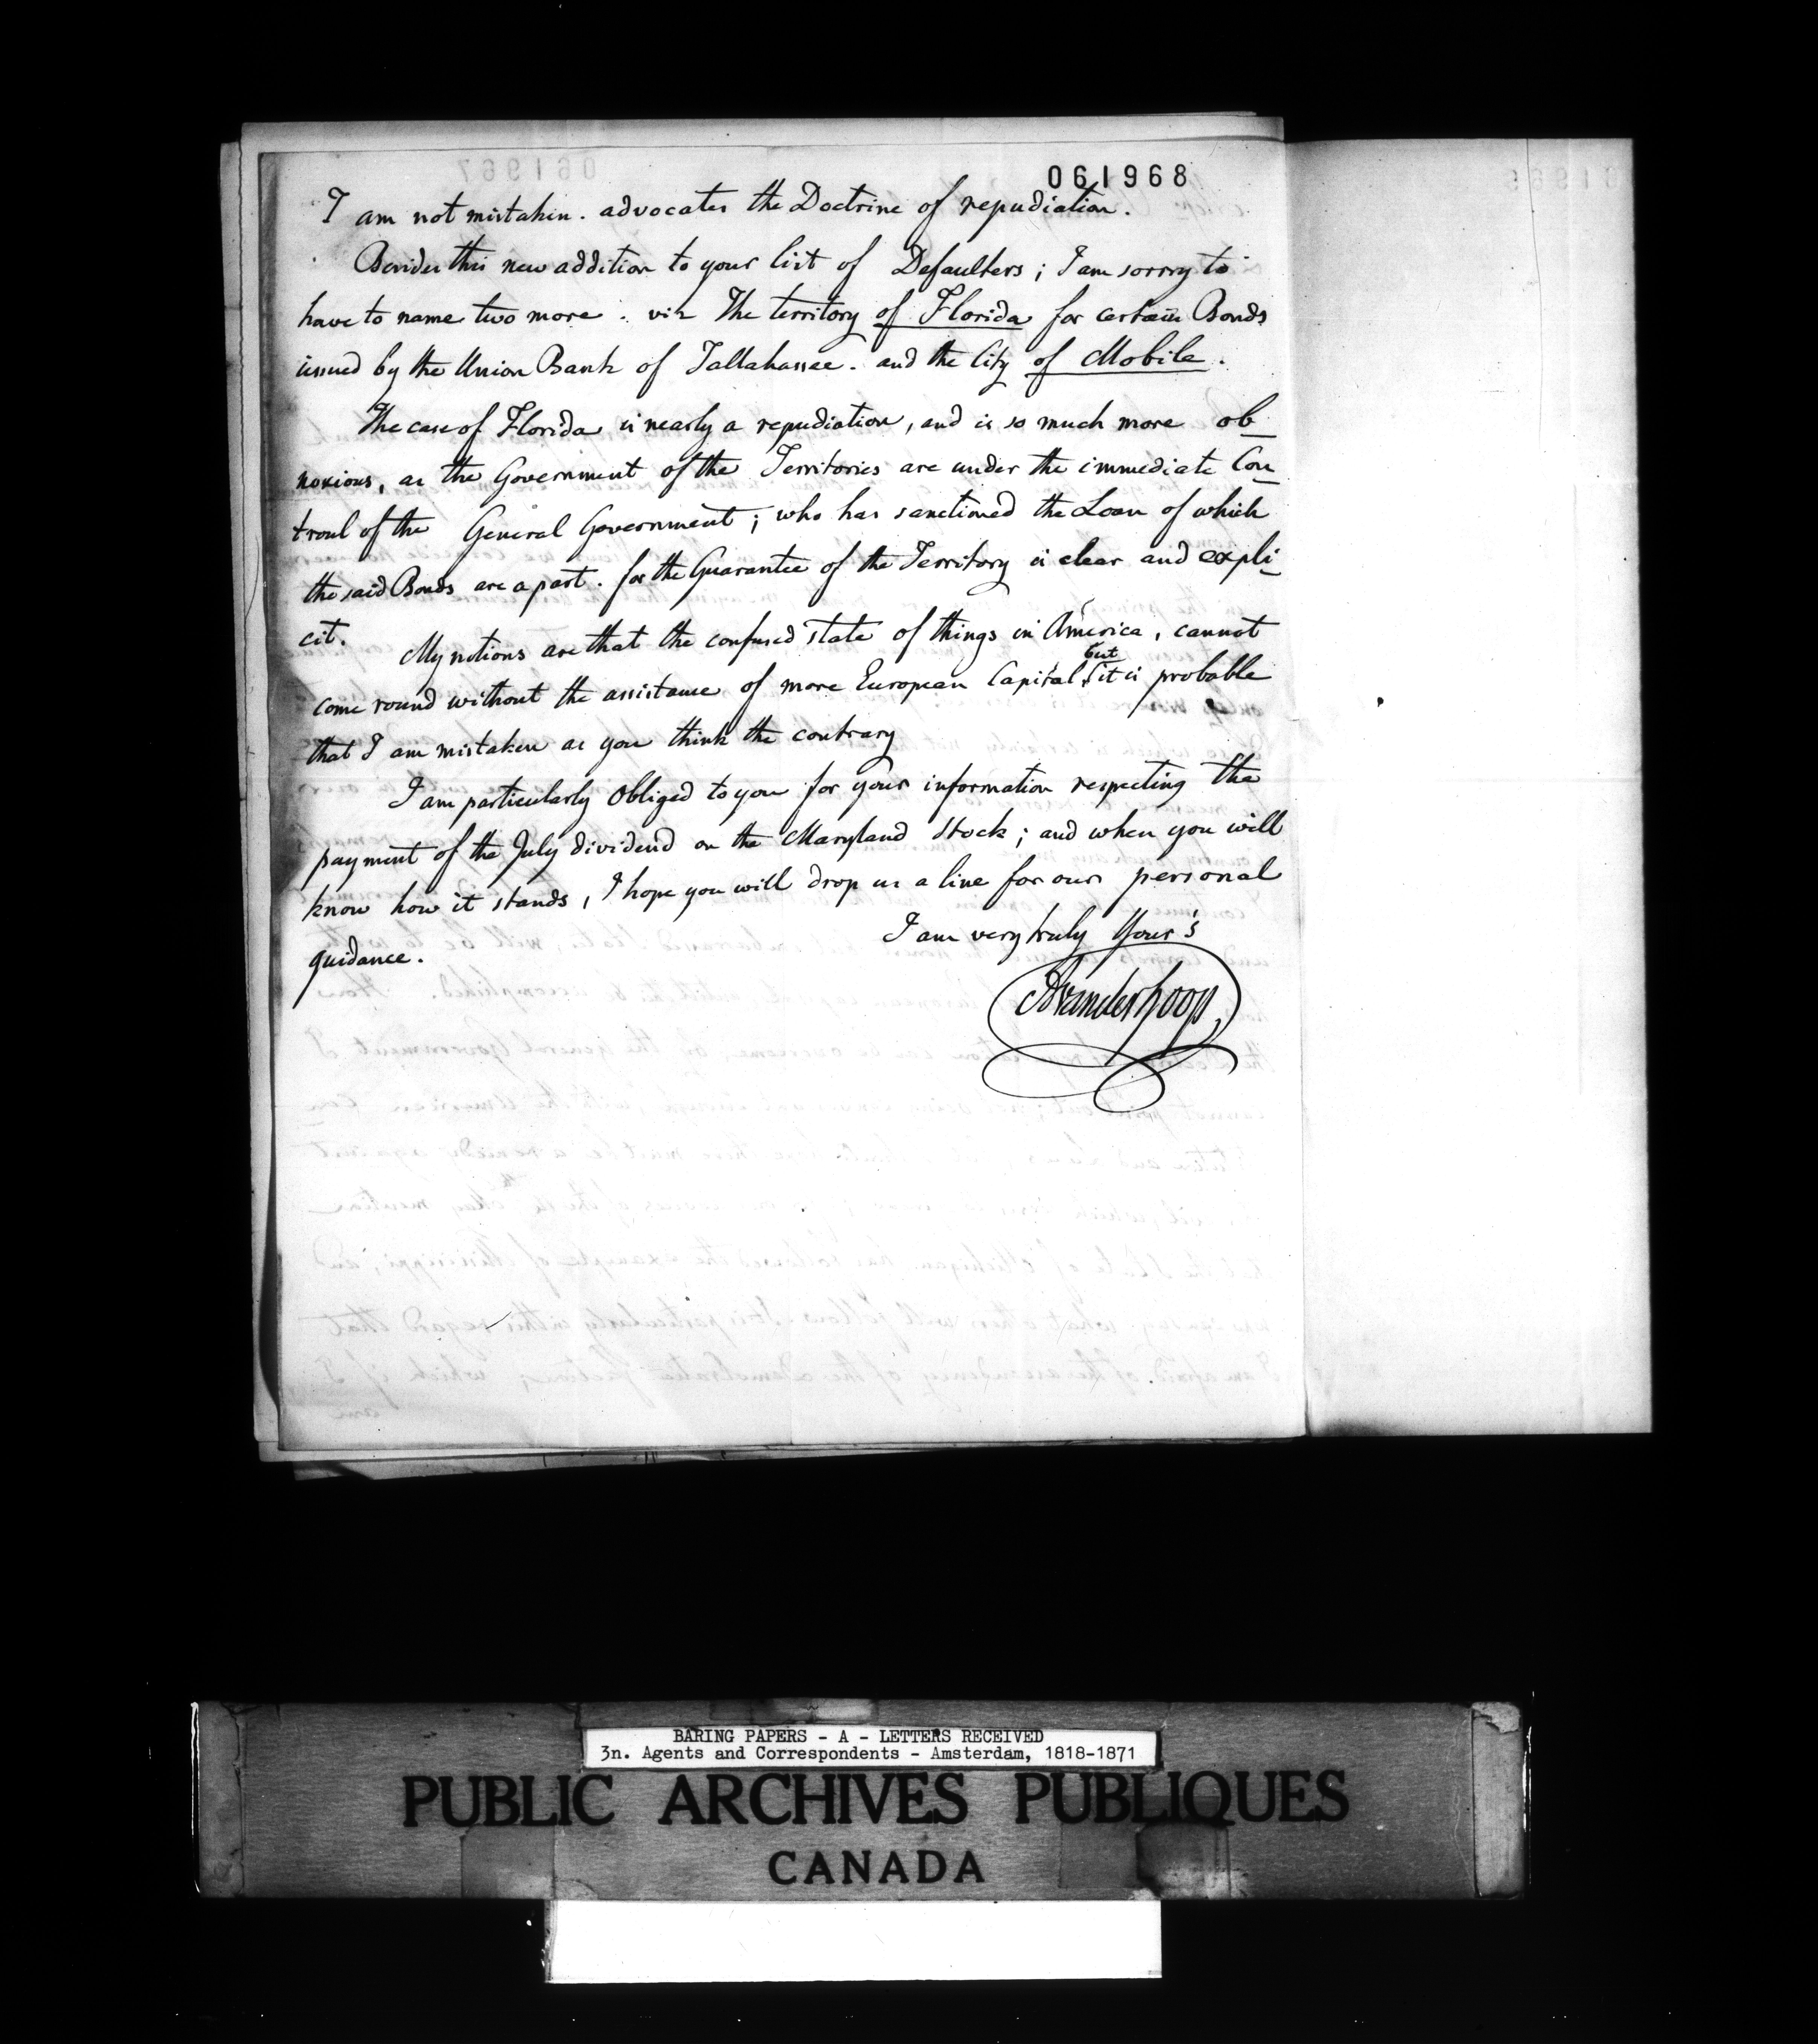 061968
I am not mistaken. advocates the Doctrine of repudiation.
Besides this new addition to your list of Defaulters; I am sorry to
have to name two more. viz The territory of Florida for certain Bonds
issued by the Union Bank of Tallahassee. and the City of Mobile.
The case of Florida is nearly a repudiation, and is so much more ob_
noxious, as the Government of the Territories are under the immediate Con_
troul of the General Government; who has sanctioned the Loan of which
the said Bonds are a part. for the Guarantee of the Territory is clear and expli_
cit.
My notions are that the confused state of things in America, cannot
come round without the assistance of more European Capital, but it is probable
that I am mistaken as you think the contrary
I am particularly obliged to you for your information respecting the
payment of the July dividend on the Maryland Stock; and when you will
know how it stands, I hope you will drop us a line for our personal
guidance.
I am very truly Your's
AvanderHoop
BARING PAPERS - A - LETTERS RECEIVED
3n. Agents and Correspondents - Amsterdam, 1818-1871
PUBLIC ARCHIVES PUBLIQUES
CANADA